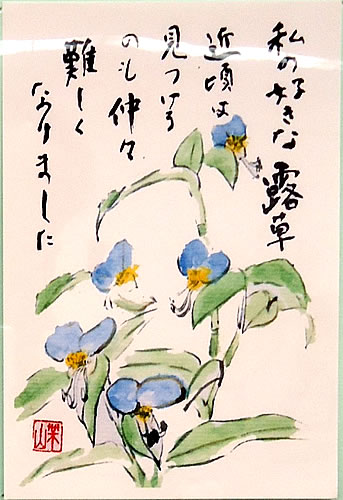 私の好きな露草
近頃は
見つける
のも仲々
難しく
なりました